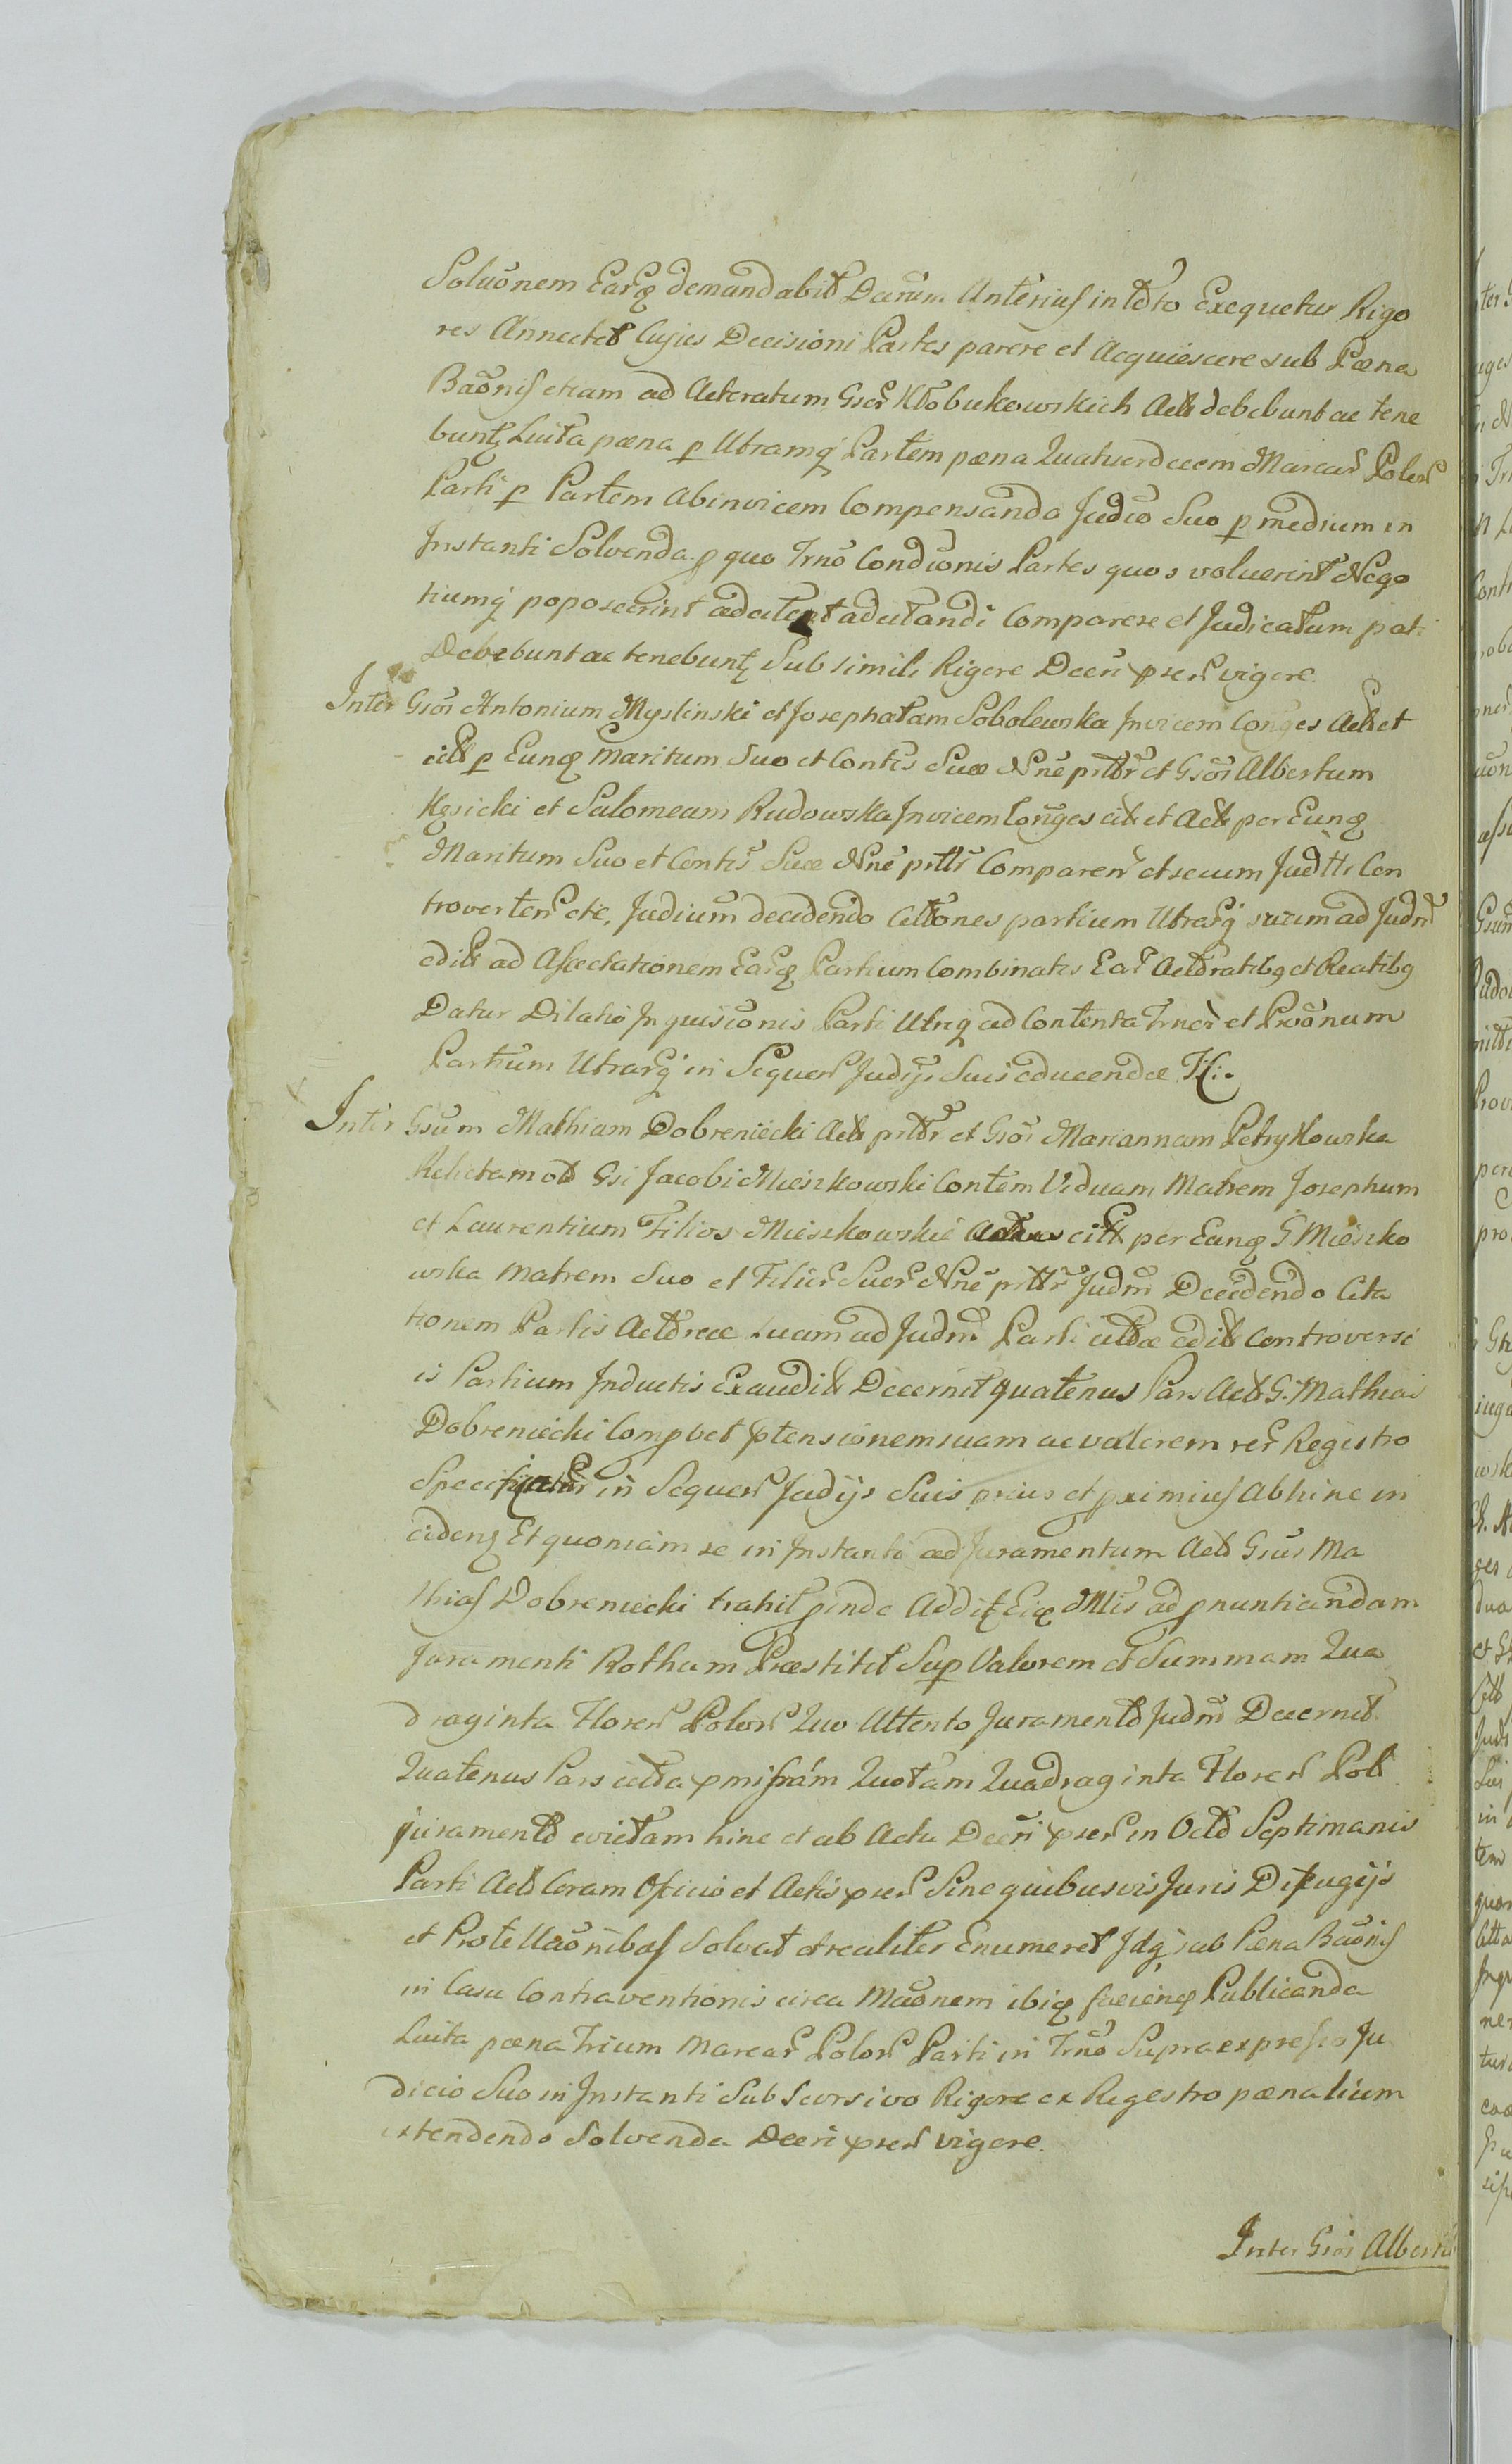 Soluõnem Earq demandabit Decrũm Anterius in tdto Exequetur Rigo
res Annectet Cujus Decisioni Partes parere et Acquiescere sub Pæna
Baõnis etiam ad Actoratum Gsor Kłobukowskich Acts debebunt ac tene
bunt Luita pæna p Utramq Partem pæna Quatuordecem Marcar Polon
Parti p Partem abinvicem Compensanda Judõ Suo p medium in
Instanti Solvenda p quo Trnõ Condõnis Partes quos voluerint Nego
tiumq poposcerint ad citandi Comparere et Judicatum pati
Debebunt ac tenebunt Sub simili Rigore Decri pser vigore.
Inter Gsos Antonium Myslinski et Josephatam Sobolewska Invicem Conges Act et
citt p Eunq Maritum Suo et Contis Suæ Nñe prttr et Gsos Albertum
Kęsicki et Salomeam Rudowska Invicem Conges citt et Act per Eunq
Maritum Suo et Contis Suæ Nñe prttr Comparen et secum Judtti Con
troverten etc. Judium decidendo Cittones partium Utrarq suam ad Judm
edit ad Afectationem Earq Partium Combinatis Ear Actdratibq et Reatibq
Datur Dilatio Inquisiõnis Parti Utriq ad Contenta Trnor et Proõnum
Partium Utrarq in Sequen Judijs Suis educendæ
Inter Gsum Mathiam Dobreniecki Act prttr et Gsos Mariannam Petrykowska
Relictam ol Gsi Jacobi Mieszkowski Contem Viduam Matrem Josephum
et Laurentium Filios Mieszkowskie citt per Eanq G Mieszko
wska Matrem Suo et Filior Suor Nñe prttr Judm Decidendo Cita
tionem Partis Actdreæ suam ad Judm Parti cittæ edit Controversi
is Partium Inductis Exaudit Decernit quatenus Pars Act G. Mathias
Dobreniecki Compbet ptensionem suam ac valorem rer Registro
Specificatar in Sequen Judijs Suis prius et proximius Abhinc in
ciden Et quoniam se in Instanti ad Juramentum Act Gsus Ma
thias Dobreniecki trahit pinde Addit Eiq Mlis ad pnuntiandam
Juramenti Rotham Præstitit Sup Valorem et Summam Qua
draginta Floren Polon Quo Attento Juramentd Judm Decernit
Quatenus Pars citta pmissam Quotam Quadraginta Floren Poll
juramentd evictam hinc et ab Actu Decri pser in Octd Septimanis
Parti Act Coram Oficio et Actis pser Sine quibusvis Juris Difugijs
et Protellaõnibus Solvat et realiter Enumeret Idq sub Pæna Baõnis
in Casu Contraventionis circa Maõnem ibiq facienq Publicanda
Luita pæna Trium Marcar Polon Parti in Trnõ Supraexpresso Ju
dicio Suo in Instanti Sub Scorsivo Rigore ex Regestro pænalium
extendendo Solvenda Decri pser vigore.
Inter Gsos Albertũ